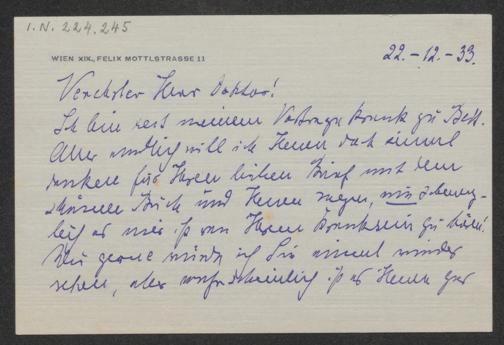 I.N. 224.245
WIEN XIX., FELIX MOTTLSTRASSE 11
22.-12.-33.
Verehrter Herr Doktor!
Ich bin seit meinem Vortrag krank zu Bett.
Aber endlich will ich Ihnen doch einmal
danken für Ihren lieben Brief mit dem
schönen Buch und Ihnen sagen, wie
es mir ist von Ihrem Kranksein zu hören!
Wie gerne würde ich Sie einmal wieder
sehen, aber wahrscheinlich ist es Ihnen gar